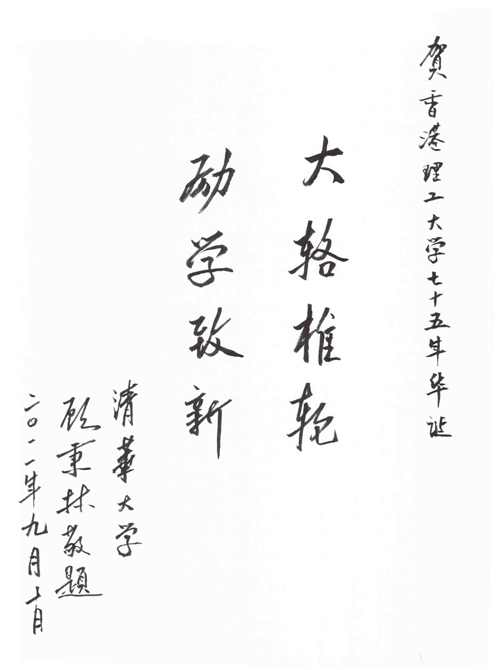 贺香港理工大学七十五年华诞
大辂椎轮
励学致新
清華大学
顾秉林敬題
二〇一一年九月十日